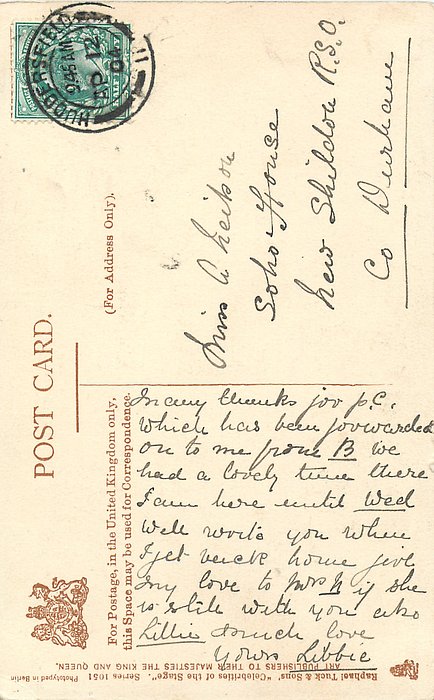 POST CARD.
(For Address Only).
For Postage, in the United Kingdom only,
this Space may be used for Correspondence.
HUDDERSFIELD
9.45 AM
AP 12
04
11
Miss A Neilson
Soho House
New Shildon R.S.O.
Co Durham
Many thanks for p.c.
which has been forwarded
on to me from B we
had a lovely time there
I am here until Wed
Well write you when
I get back home give
my love to Mrs N if she
is still with you also
Lillie & much love
Yours Libbie
Raphael Tuck & Sons' "Celebrities of the Stage", Series 1051
ART PUBLISHERS TO THEIR MAJESTIES THE KING AND QUEEN.
Phototyped in Berlin